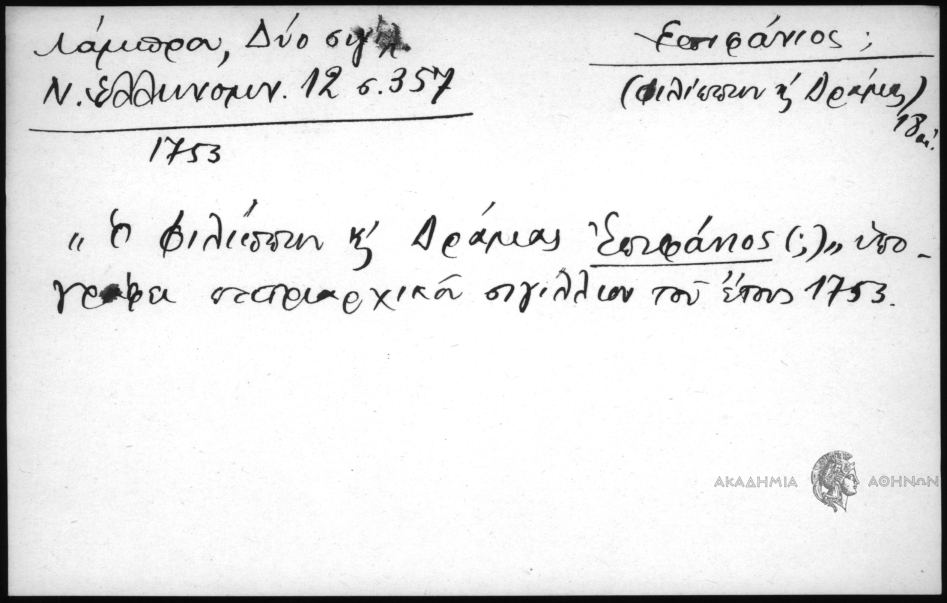 Λάμπρου, Δύο σιγιλ.
Ν. Ἑλληνομν. 12 σ. 357
1753
Ἐπιφάνιος;
(Φιλίππων κ̓ Δράμας)
18 αἰ.
"Ὁ Φιλίππων κ̓ Δράμας Ἐπιφάνιος (;)" ὑπο-
γράφει πατριαρχικὸν σιγίλλιον τοῦ ἔτους 1753.
ΑΚΑΔΗΜΙΑ ΑΘΗΝΩΝ